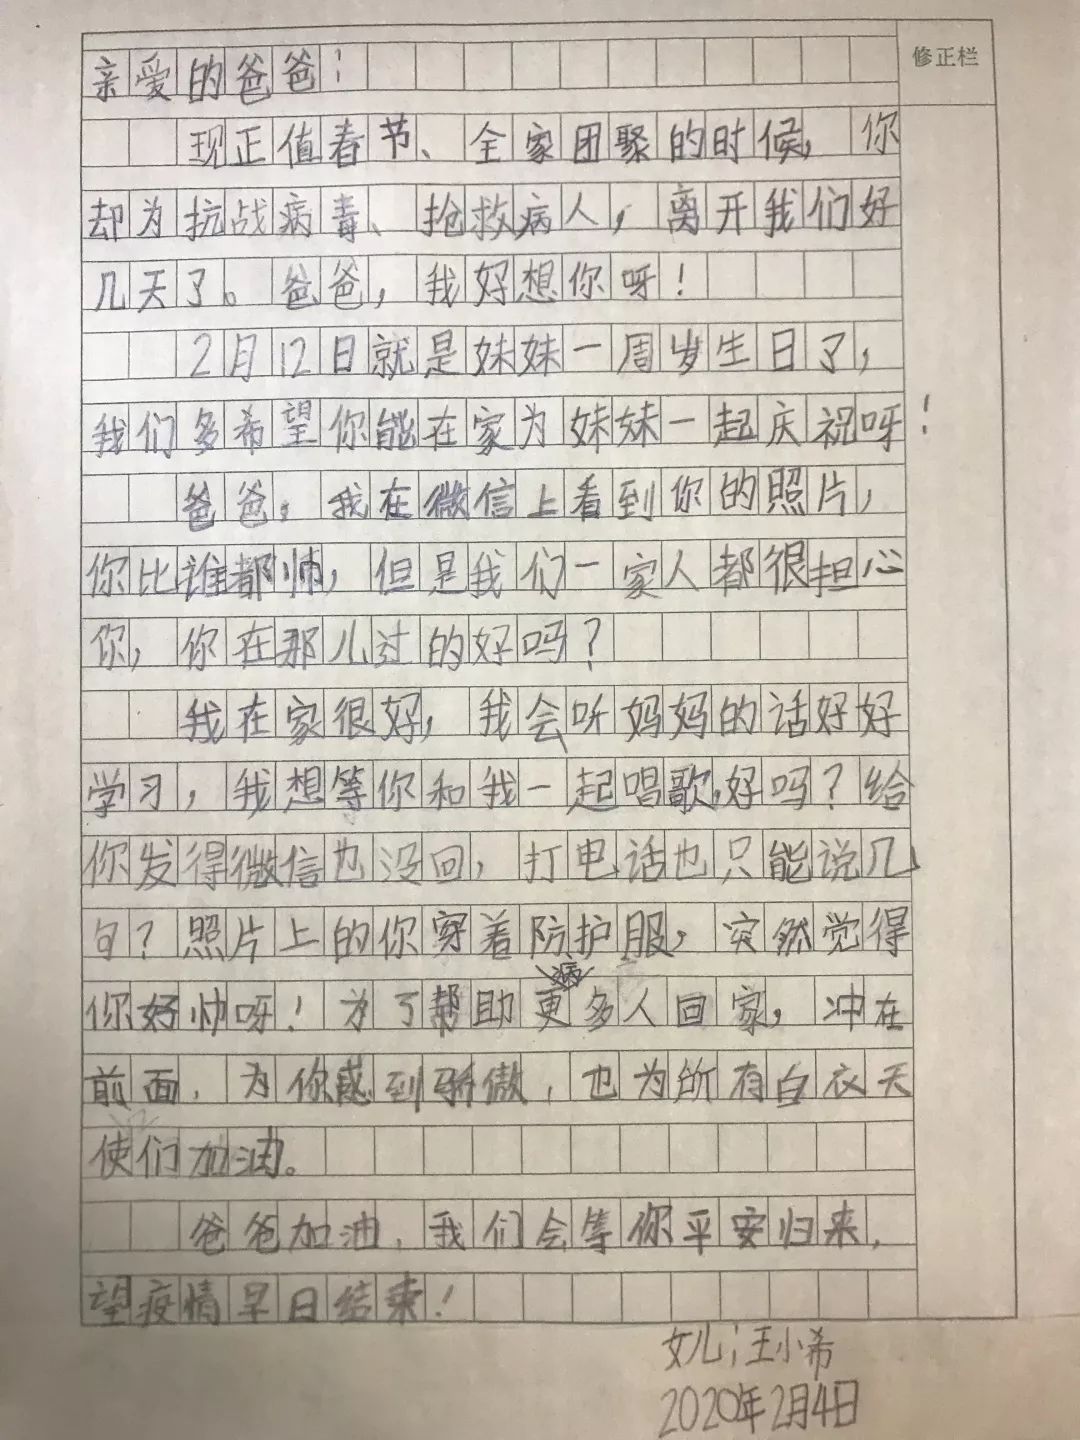 修正栏
亲爱的爸爸：
现正值春节、全家团聚的时候，你
却为抗战病毒、抢救病人，离开我们好
几天了。爸爸，我好想你呀！
2月12日就是妹妹一周岁生日了，
我们多希望你能在家为妹妹一起庆祝呀！
爸爸，我在微信上看到你的照片，
你比谁都帅，但是我们一家人都很担心
你，你在那儿过的好吗？
我在家很好，我会听妈妈的话好好
学习，我想等你和我一起唱歌，好吗？给
你发得微信也没回，打电话也只能说几
句？照片上的你穿着防护服，突然觉得
你好帅呀！为了帮助更多病人回家，冲在
前面，为你感到骄傲，也为所有白衣天
使们加油。
爸爸加油，我们会等你平安归来，
望疫情早日结束！
女儿：王小希
2020年2月4日